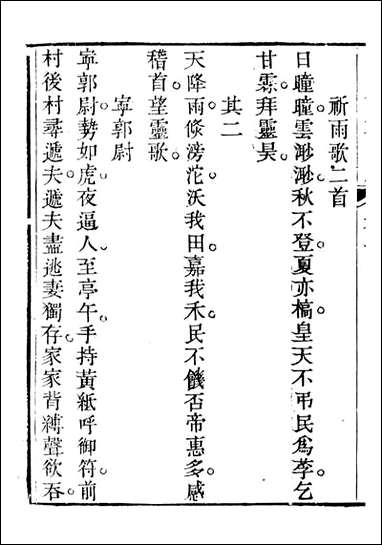 祈雨歌二首
日曈曈雲渺渺秋不登夏亦槁皇天不弔民爲莩乞
甘霖拜靈昊
其二
天降雨倐滂沱沃我田嘉我禾民不饑否帝惠多感
稽首望靈歌
寧郭尉
寧郭尉勢如虎夜逼人至亭午手持黃紙呼御符前
村後村尋遞夫遞夫盡逃妻獨存家家背縛聲欲吞